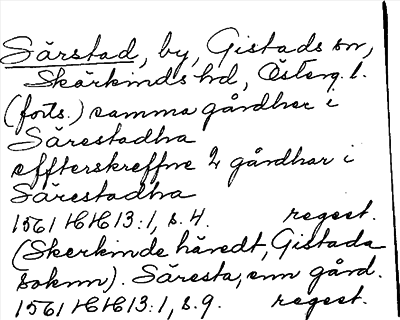 Särstad, by, Gistads sn,
Skärkinds hd, Österg. l.
(forts.) samma gårdher i
Särestadha
effterskreffne 2 gårdhar i
Särestadha
1561 HH 13:1, s. 4. regest.
(Skerkinde häredt, Gistada
soknn). Säresta, enn gård.
1561 HH 13:1, s. 9. regest.